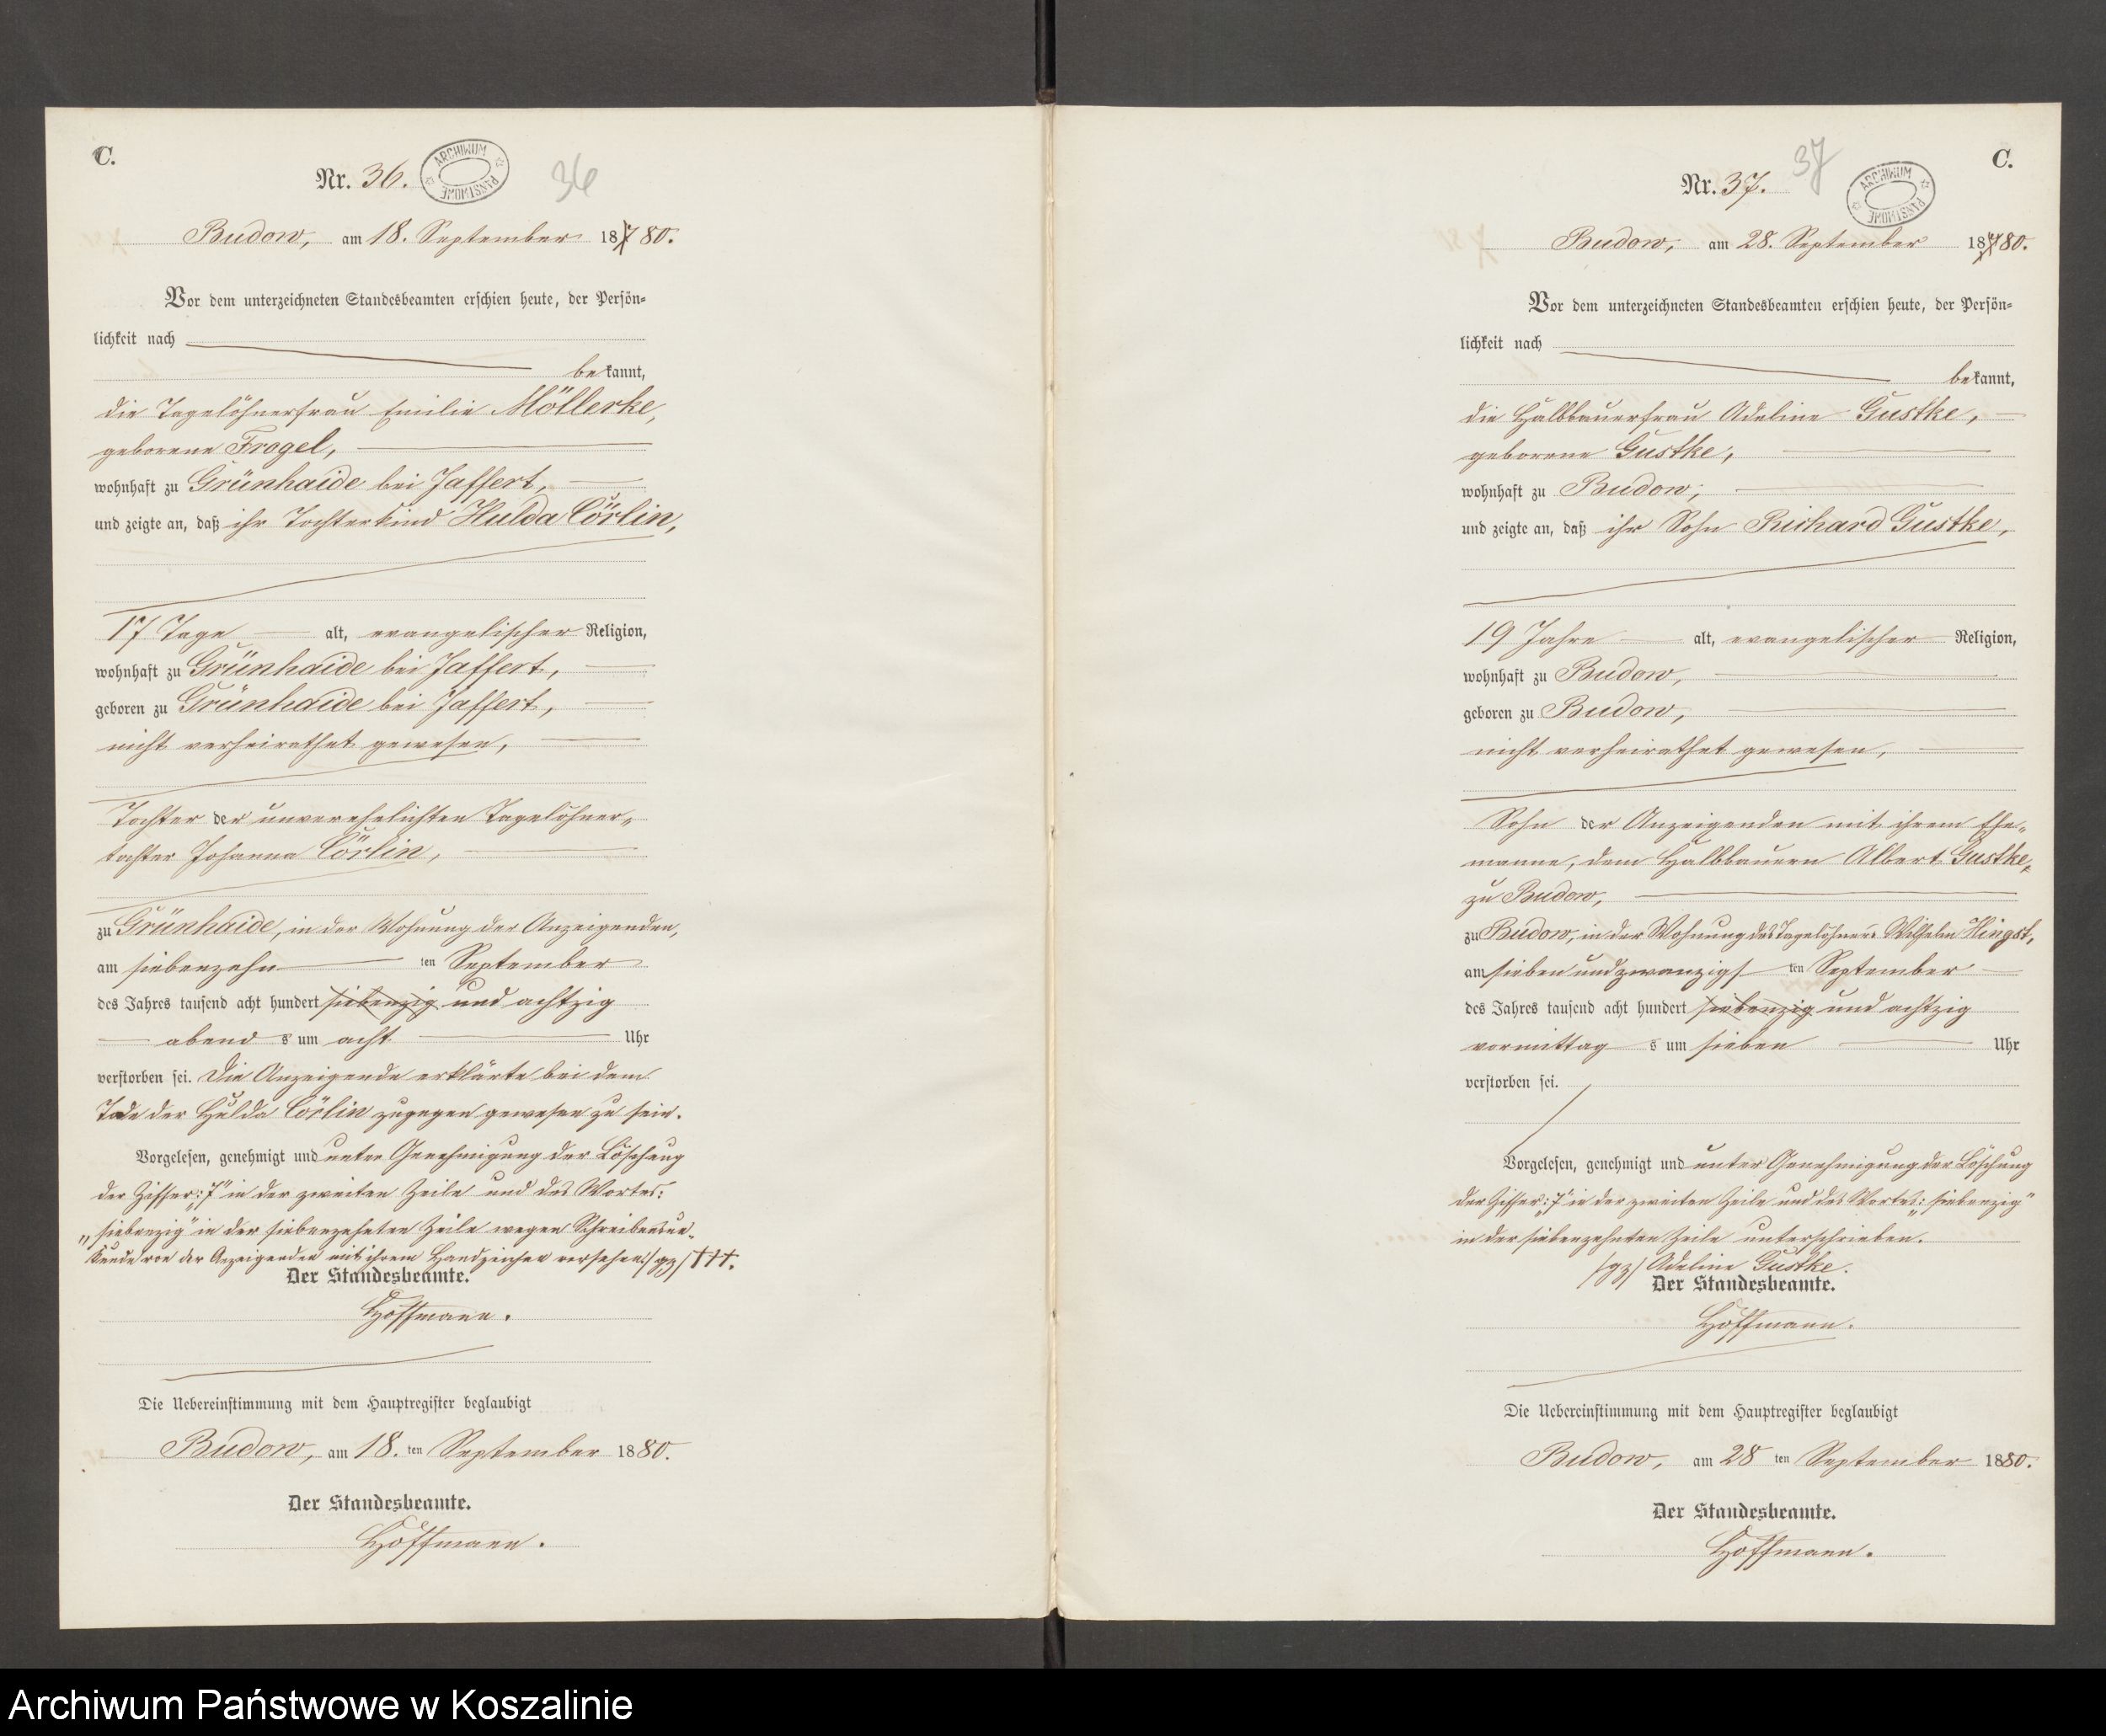 C.
Nr. 36.
ARCHIWUM PAŃSTWOWE
36
Budow, am 18. September 18780.
Vor dem unterzeichneten Standesbeamten erschien heute, der Persön=
lichkeit nach
bekannt,
die Tagelöhnerfrau Emilie Möllerke,
geborene Frogel,
wohnhaft zu Grünhaide bei Jassert,
und zeigte an, daß ihr Tochterkind Hulda Cörlin,
17 Tage alt, evangelischer Religion,
wohnhaft zu Grünhaide bei Jassert,
geboren zu Grünhaide bei Jassert,
nicht verheirathet gewesen,
Tochter der unverehelichten Tagelöhner=
tochter Johanna Cörlin,
zu Grünhaide, in der Wohnung der Anzeigenden,
am siebenzehn ten September
des Jahres tausend acht hundert siebenzig und achtzig
abend s um acht Uhr
verstorben sei. Die Anzeigende erklärte bei dem
Tode der Hulda Cörlin zugegen gewesen zu sein.
Vorgelesen, genehmigt und unter Genehmigung der Löschung
der Ziffer: „7" in der zweiten Zeile und des Wortes:
„siebenzig" in der siebenzehnten Zeile wegen Schreibensun=
kunde von der Anzeigenden mit ihrem Handzeichen versehen. /gz/ †††.
Der Standesbeamte.
Hoffmann.
Die Uebereinstimmung mit dem Hauptregister beglaubigt
Budow, am 18. ten September 1880.
Der Standesbeamte.
Hoffmann.
C.
Nr. 37.
37
ARCHIWUM PAŃSTWOWE
Budow, am 28. September 18780.
Vor dem unterzeichneten Standesbeamten erschien heute, der Persön=
lichkeit nach
bekannt,
die Halbbauerfrau Adeline Gustke,
geborene Gustke,
wohnhaft zu Budow,
und zeigte an, daß ihr Sohn Richard Gustke,
19 Jahre alt, evangelischer Religion,
wohnhaft zu Budow,
geboren zu Budow,
nicht verheirathet gewesen,
Sohn der Anzeigenden mit ihrem Ehe=
manne, dem Halbbauern Albert Gustke,
zu Budow,
zu Budow, in der Wohnung des Tagelöhners Wilhelm Hingst,
am sieben und zwanzigs ten September
des Jahres tausend acht hundert siebenzig und achtzig
vormittag s um sieben Uhr
verstorben sei.
Vorgelesen, genehmigt und unter Genehmigung der Löschung
der Ziffer: „7" in der zweiten Zeile und des Wortes: „siebenzig"
in der siebenzehnten Zeile unterschrieben.
/gz/ Adeline Gustke.
Der Standesbeamte.
Hoffmann.
Die Uebereinstimmung mit dem Hauptregister beglaubigt
Budow, am 28 ten September 1880.
Der Standesbeamte.
Hoffmann.
Archiwum Państwowe w Koszalinie